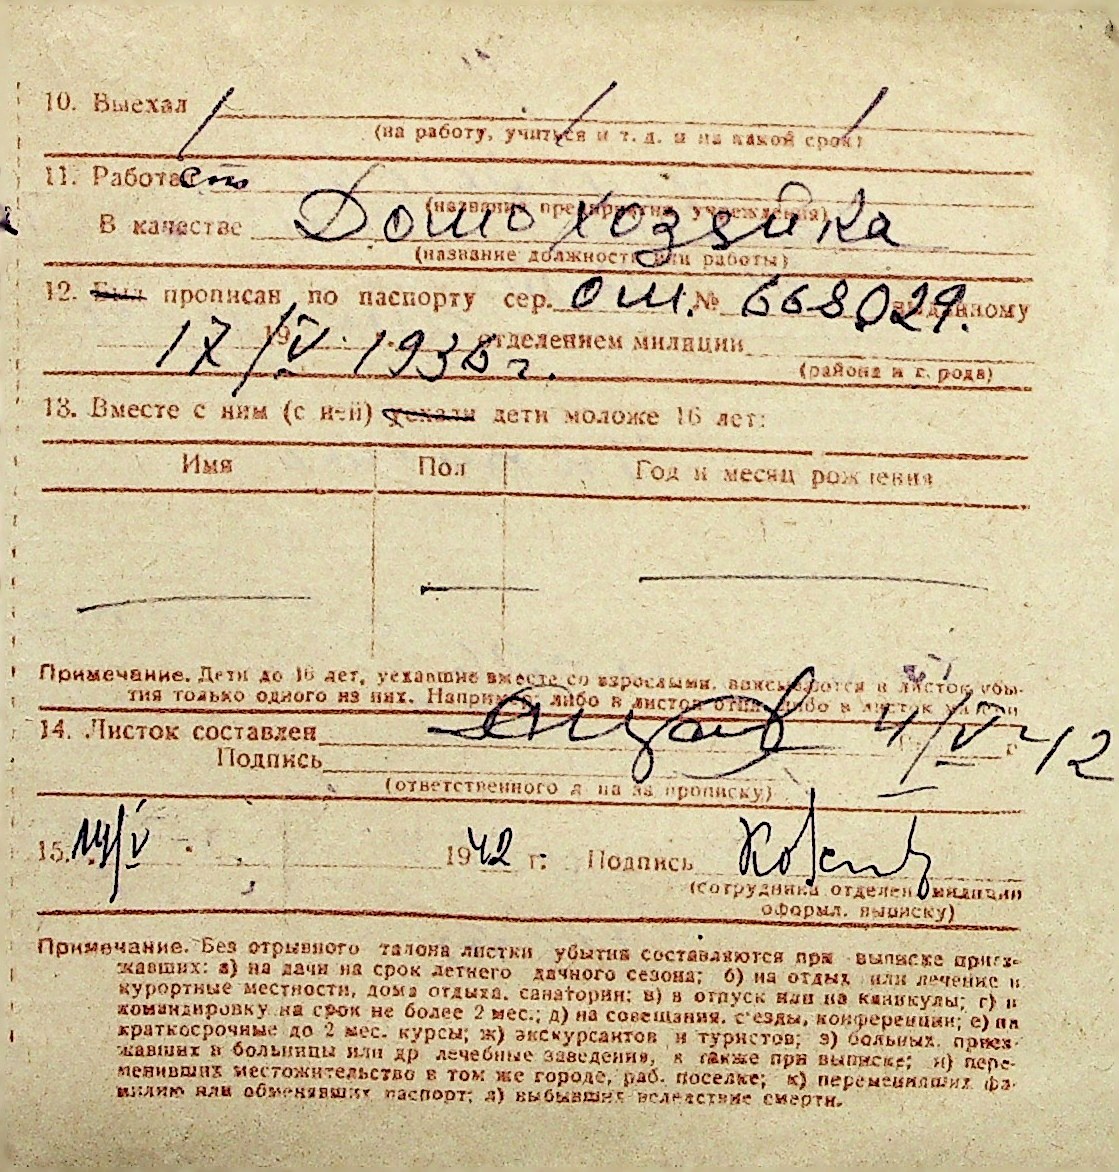 10. Выехал
(на работу, учиться и т. д. и на какой срок)
11. Работает
(название предприятия, учреждения)
В качестве Домохозяйка
(название должности или работы)
12. Был прописан по паспорту сер. ОШ. № 668029. выданному
17/V. 1936 г. отделением милиции
(района и города)
13. Вместе с ним (с ней) уехали дети моложе 16 лет:
Имя Пол Год и месяц рождения
Примечание. Дети до 16 лет, уехавшие вместе со взрослыми, вписываются в листок убы-
тия только одного из них. Например: либо в листок отца, либо в листок матери
14. Листок составлен 4/V-42 г
Подпись
(ответственного л на за прописку)
15. 14/V 1942 г. Подпись
(сотрудника отделен. милиции
оформл. выписку)
Примечание. Без отрывного талона листки убытия составляются при выписке приез-
жавших: а) на дачи на срок летнего дачного сезона; б) на отдых или лечение в
курортные местности, дома отдыха, санатории; в) в отпуск или на каникулы; г) в
командировку на срок не более 2 мес.; д) на совещания, с'езды, конференции; е) на
краткосрочные до 2 мес. курсы; ж) экскурсантов и туристов; з) больных, приез-
жавших в больницы или др лечебные заведения, а также при выписке; и) пере-
менивших местожительство в том же городе, раб. поселке; к) переменивших фа-
милию или обменявших паспорт; л) выбывших вследствие смерти.